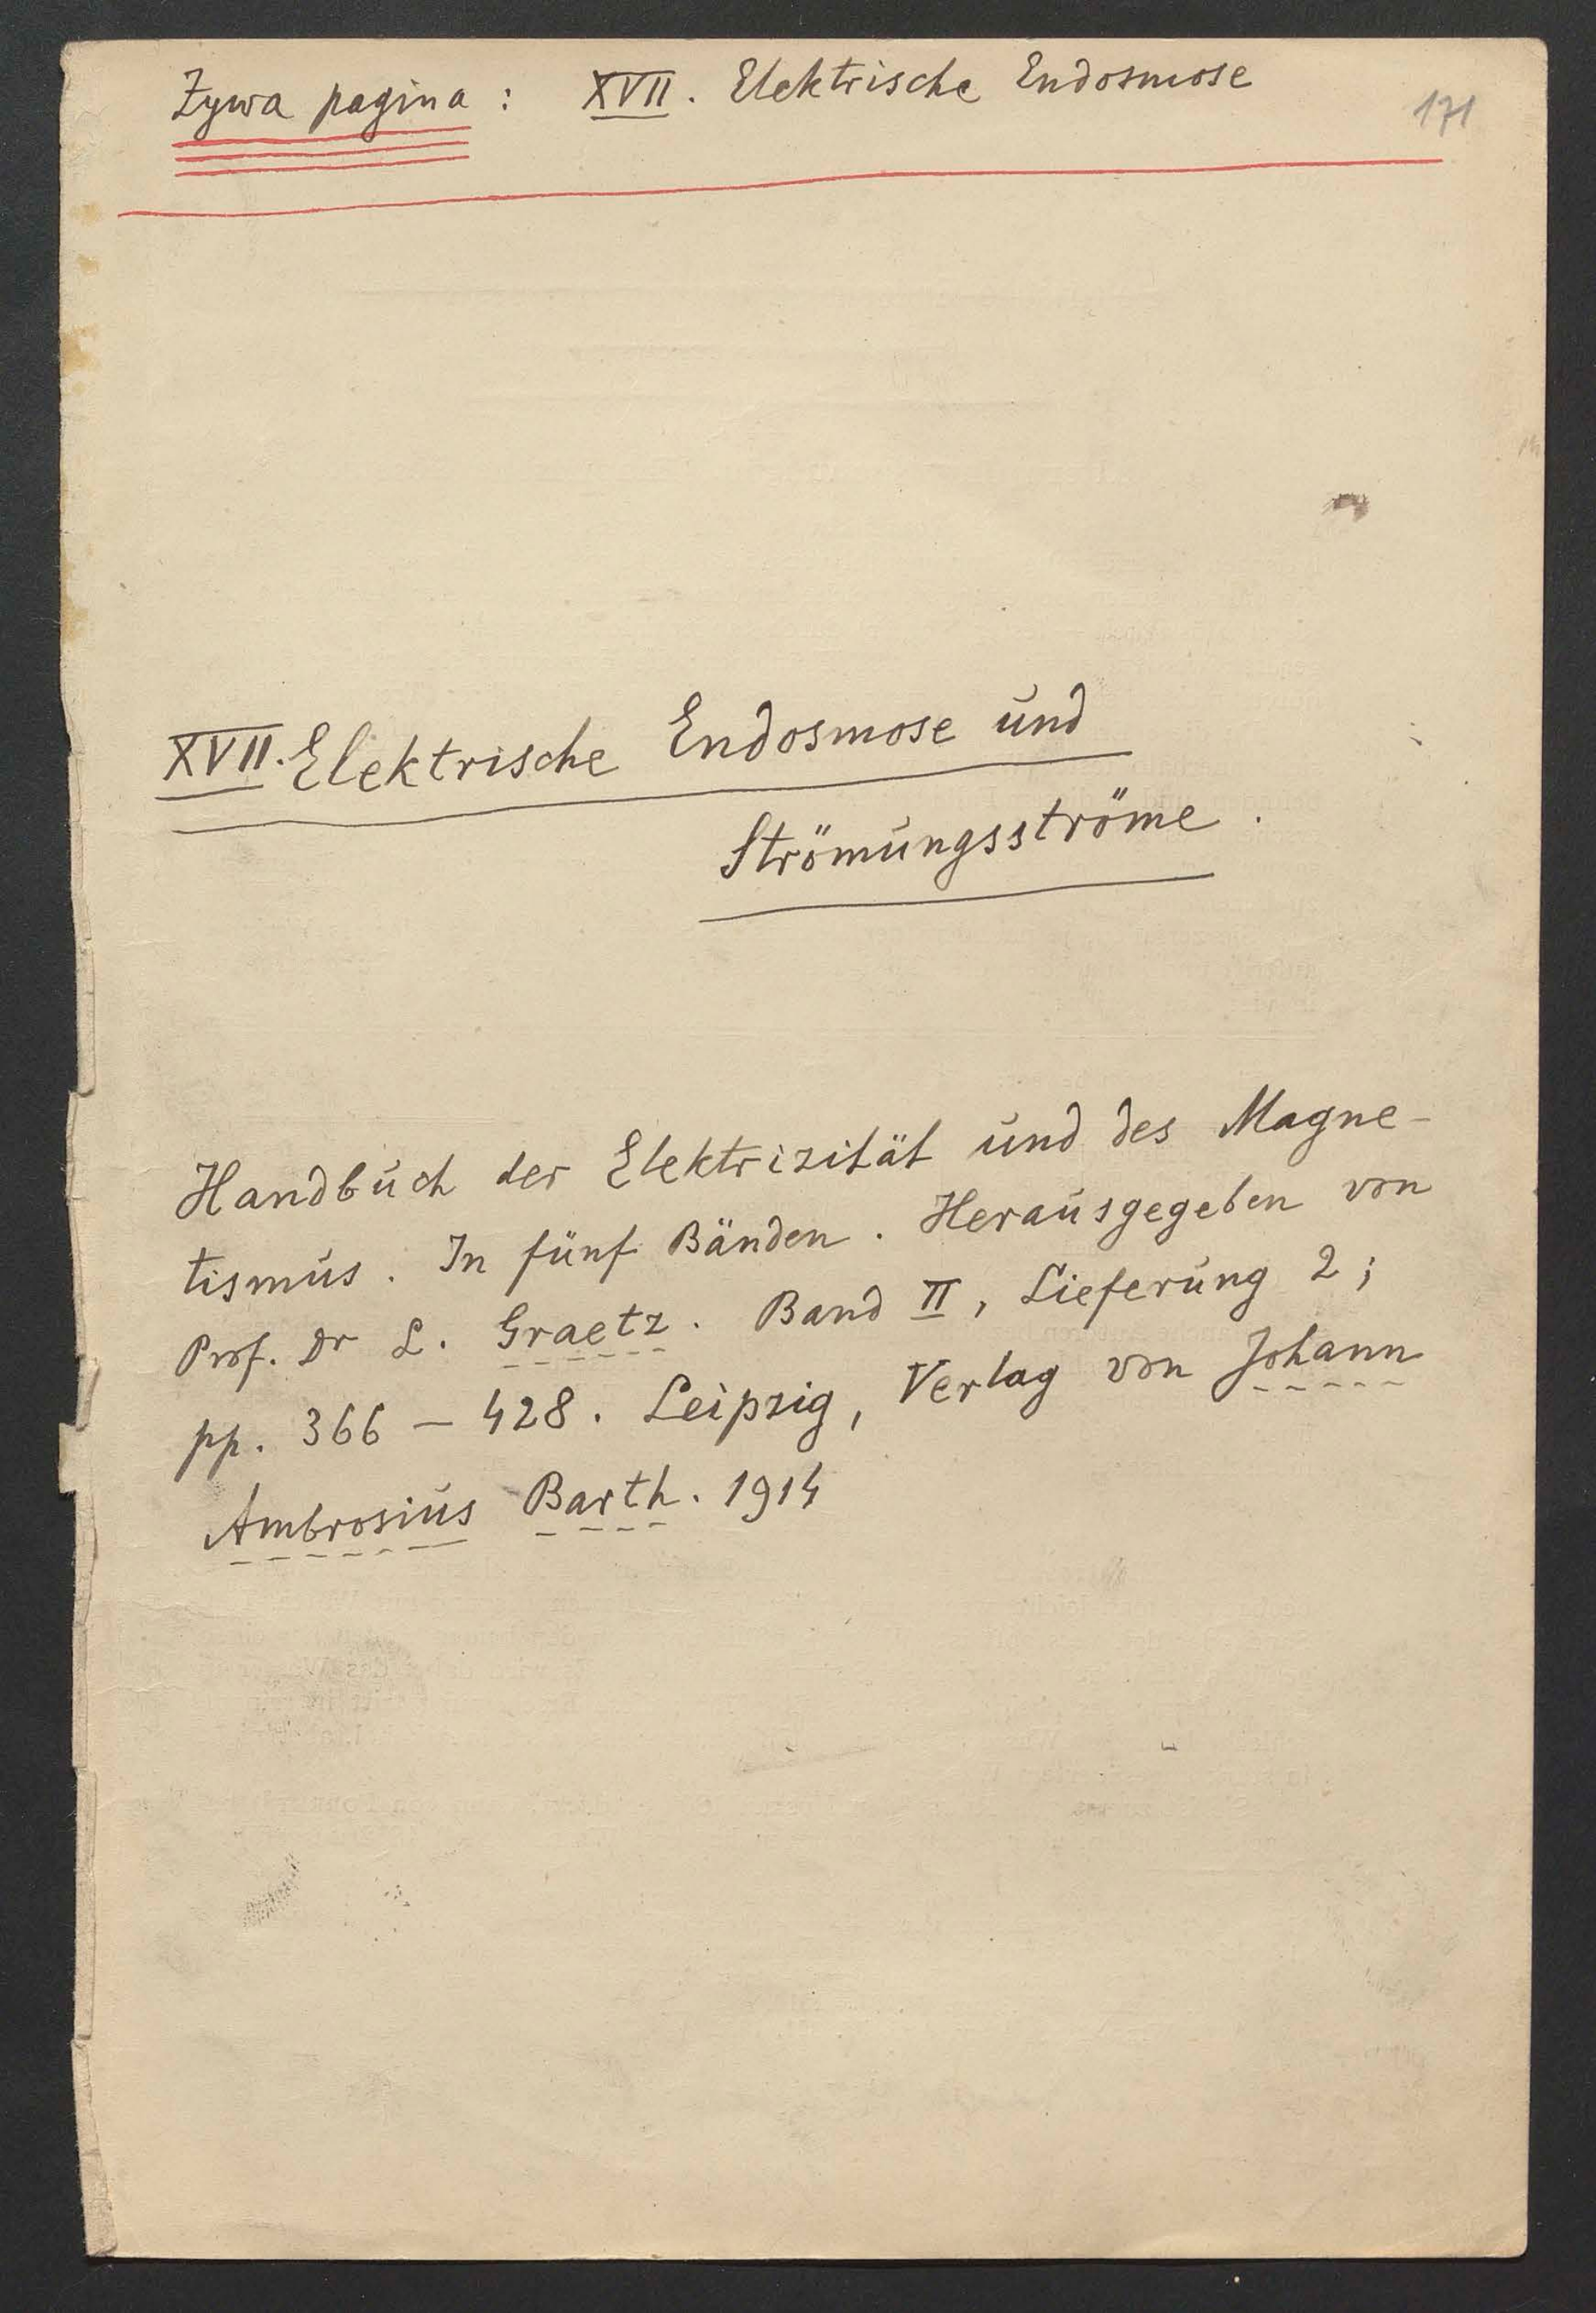 Żywa pagina : XVII. Elektrische Endosmose
171
XVII. Elektrische Endosmose und
Strömungsströme.
Handbuch der Elektrizität und des Magne-
tismus. In fünf Bänden. Herausgegeben von
Prof. Dr L. Graetz. Band II, Lieferung 2;
pp. 366 – 428. Leipzig, Verlag von Johann
Ambrosius Barth. 1914